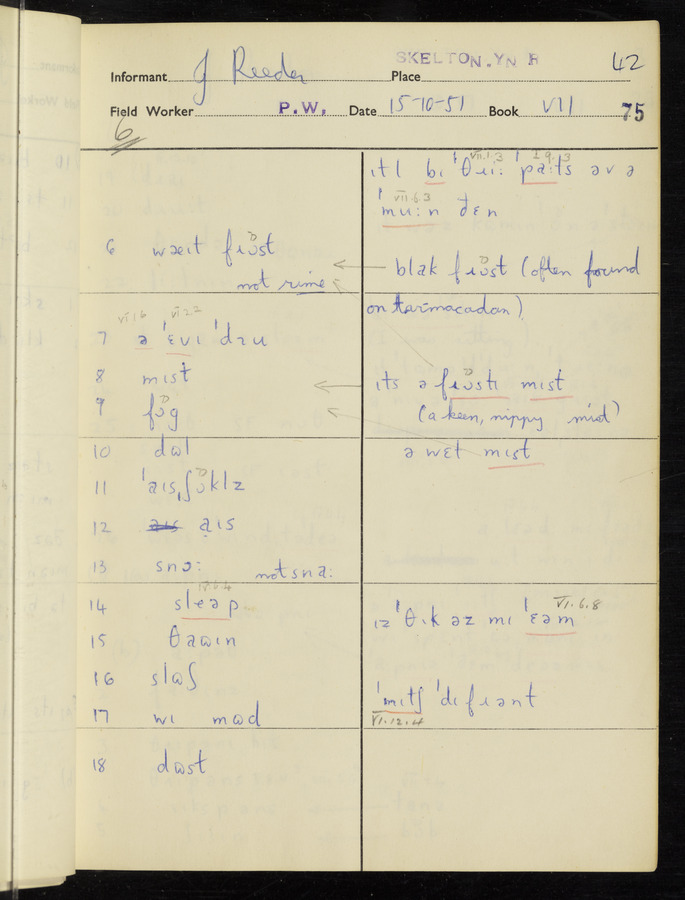 SKELTON. YN R 42
Informant J Reeder Place
Field Worker P.W. Date 15-10-51 Book VII 75
6
VII.1.3 I.9.3
ɪtl bɪ ˈθɹiː ˈpaːts əv ə
VII.6.3
ˈmuːn ðɛn
6 wæɪt fɹɔst
not rime
blak fɹɔst (often found
on tarmacadam)
VI.1.6 VI.2.2
7 ə ˈɛvɪ ˈdɹu
8 mɪst
ɪts ə fɹɔstɪ mɪst
(a keen, nippy mist)
9 fɔg
10 dɷl
ə wɛt mɪst
11 ˈaɪsˌʃɔklz
12 aɪs
13 snɔː not snaː
IV.6.4
14 sleəp
VI.6.8
ɪz ˈθɪk əz mɪ ˈɛəm
15 θaɷɪn
16 slɷʃ
17 wɪ mɷd
ˈmɪtʃ ˈdɪfɹənt
VI.12.4
18 dɷst